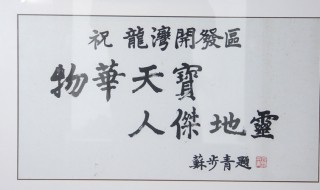 祝 龍灣開發區
物華天寶
人傑地靈
蘇步青題